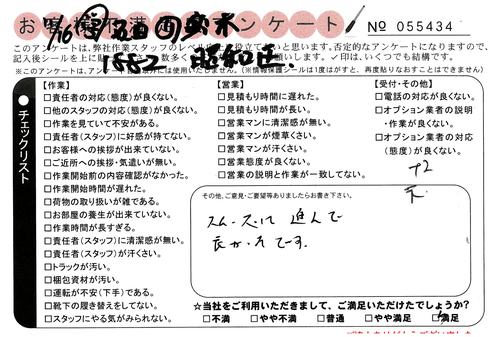 お客様作業満足度アンケート! No 055434
このアンケートは、弊社作業スタッフのレベル
役立てたいと思います。否定的なアンケートになりますので、
記入後シールを上に
数多く
願いします。✓印は、いくつでも結構です。
※このアンケートは、アンケート
以外には使用いたしません。(※情報保護シールは1度はがすと、再度貼りなおすことはできません)
●チェックリスト
【作業】
□責任者の対応(態度)が良くない。
□他のスタッフの対応(態度)が良くない。
□作業を見ていて不安がある。
□責任者(スタッフ)に好感が持てない。
□お客様への挨拶が出来ていない。
□ご近所への挨拶・気遣いが無い。
□作業開始前の内容確認がなかった。
□作業開始時間が遅れた。
□荷物の取り扱いが雑である。
□お部屋の養生が出来ていない。
□作業時間が長すぎる。
□責任者(スタッフ)に清潔感が無い。
□責任者(スタッフ)が汗さい。
□トラックが汚い。
□梱包資材が汚い。
□運転が不安(下手)である。
□靴下の履き替えをしてない。
□スタッフにやる気がみられない。
【営業】
□見積もり時間に遅れた。
□見積もり時間が長い。
□営業マンに清潔感が無い。
□営業マンが煙草くさい。
□営業マンが汗さい。
□営業態度が良くない。
□営業の説明と作業が一致してない。
【受付・その他】
□電話の対応が良くない。
□オプション業者の説明
・作業が良くない。
□オプション業者の対応
(態度)が良くない。
その他、ご意見・ご要望等ありましたらお書き下さい。
スムーズに進んで
良かったです。
☆当社をご利用いただきまして、ご満足いただけたでしょうか?
□不満 □やや不満 □普通 □やや満足 ☑満足